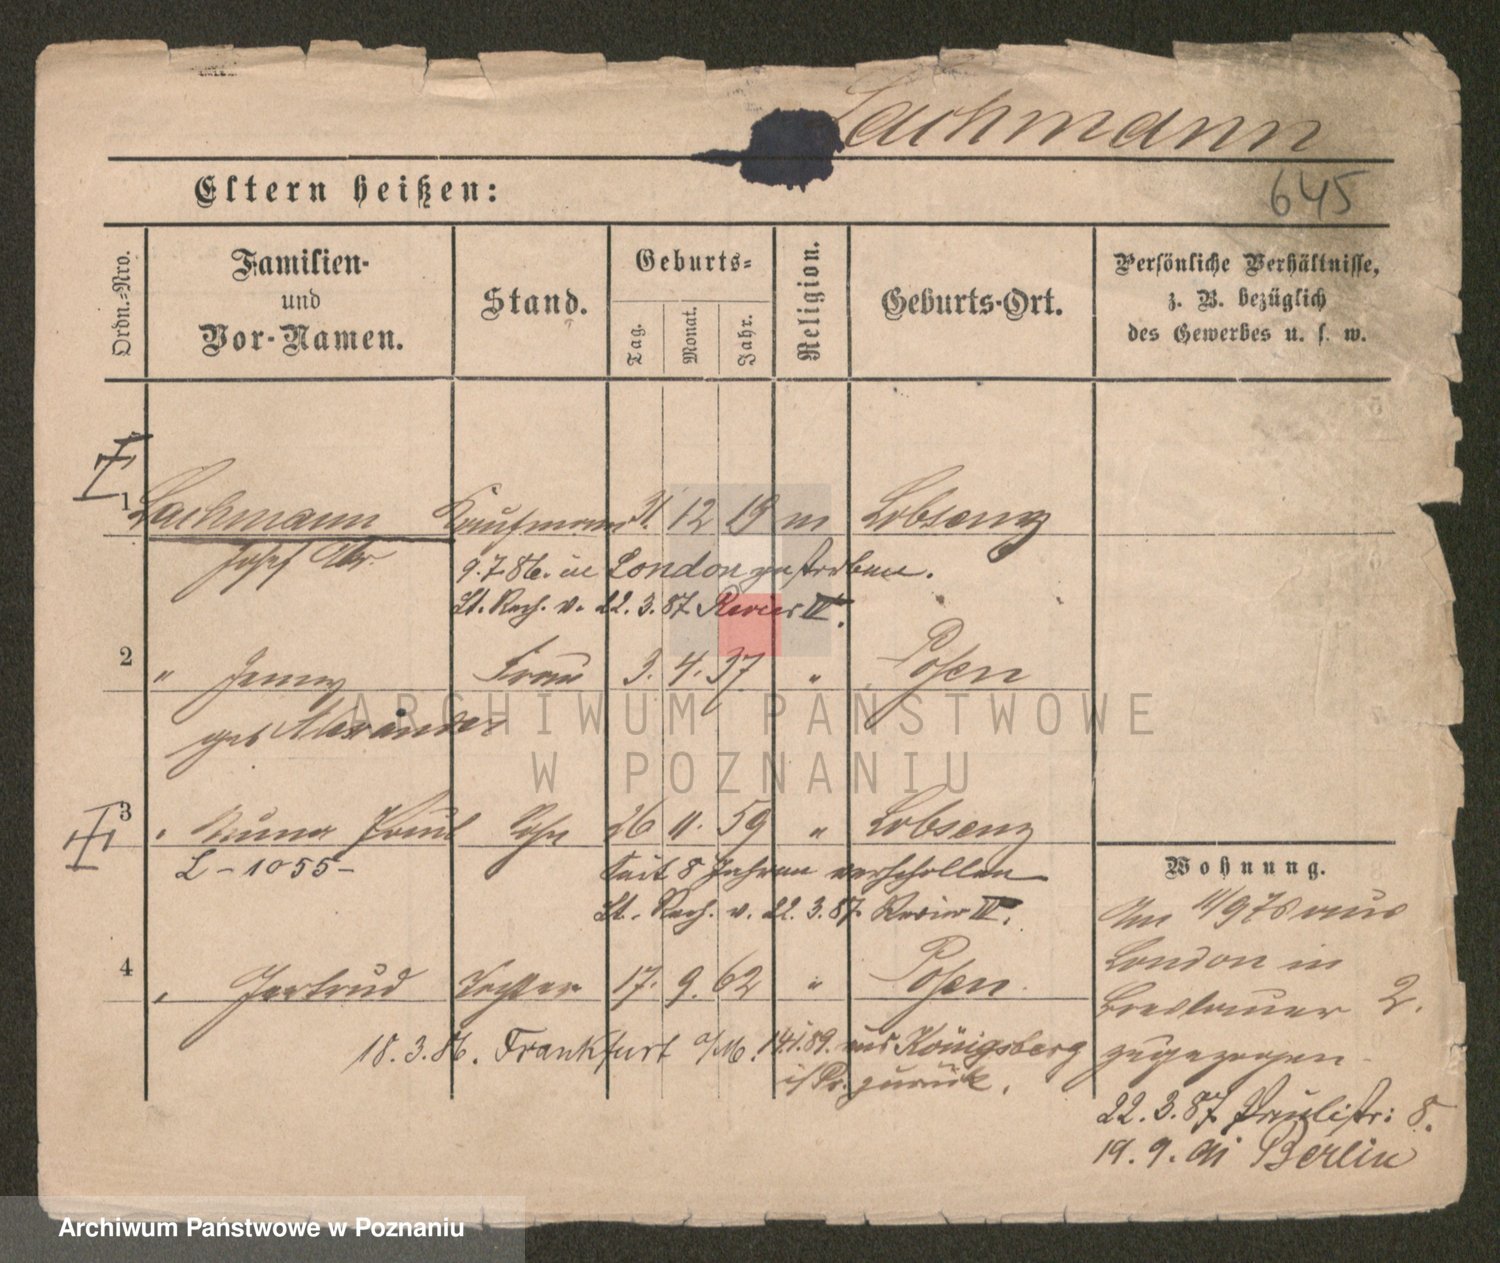 Lachmann
Eltern heißen:
645
Ordn.-Nro.
Familien-
und
Vor-Namen.
Stand.
Geburts-
Tag.
Monat.
Jahr.
Religion.
Geburts-Ort.
Persönliche Verhältnisse,
z. B. bezüglich
des Gewerbes u. s. w.
1 Lachmann Kaufmann 31. 12 19 m Lobsenz
Josef
9.7.86. in London gestorben.
Lt. Rech. v. 22. 3. 87. Revier IV.
2 " Jenny Frau 3. 4. 37 " Posen
geb Alexander
3 " Paul Sohn 26 11. 59 " Lobsenz
L - 1055 -
Seit 8 Jahren verschollen
Lt. Rech. v. 22. 3. 87. Revier IV.
4 " Gertrud Tochter 17. 9. 62 " Posen.
18. 3. 86. Frankfurt a/M. 14.1.89. aus Königsberg
i/Pr. zurück.
Wohnung.
Am 11/9 78 aus
London in
Breslauer 2.
zugezogen.
22. 3. 87. Paulistr: 8.
19. 9. 91 Berlin
ARCHIWUM PAŃSTWOWE
W POZNANIU
Archiwum Państwowe w Poznaniu